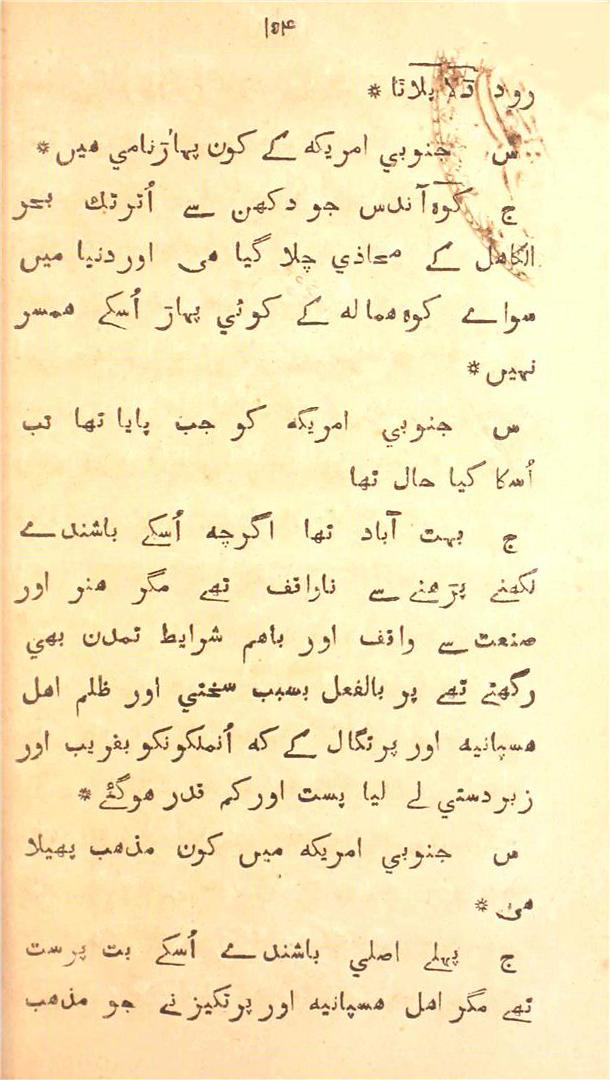 ۱۵۴
رود لا پلاتا *
س جنوبي امریکه کے کون پہاڑ نامي هیں *
ج کوه آندس جو دکھن سے اُتر تک بحر
الکاهل کے محاذي چلا گیا هی اور دنیا میں
سواے کوه همالہ کے کوئي پہاڑ اُسکے همسر
نہیں *
س جنوبي امریکه کو جب پایا تھا تب
اُسکا کیا حال تھا
ج بہت آباد تھا اگرچه اُسکے باشندے
لکھنے پڑهنے سے ناواقف تھے مگر هنر اور
صنعت سے واقف اور باهم شرایط تمدن بھي
رکھتے تھے پر بالفعل بسبب سختي اور ظلم اهل
هسپانیه اور پرتگال کے که اُنملکونکو بفریب اور
زبردستي لے لیا پست اور کم قدر هوگئے *
س جنوبي امریکه میں کون مذهب پھیلا
هی *
ج پہلے اصلي باشندے اُسکے بت پرست
تھے مگر اهل هسپانیه اور پرتکیز نے جو مذهب